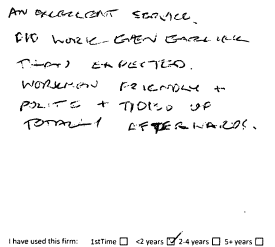 AN EXCELLENT SERVICE.
DID WORK EVEN EARLIER
THAN EXPECTED.
WORKMEN FRIENDLY +
POLITE + TIDIED UP
TOTALLY AFTERWARDS.
I have used this firm: 1stTime ☐ <2 years ☑ 2-4 years ☐ 5+ years ☐